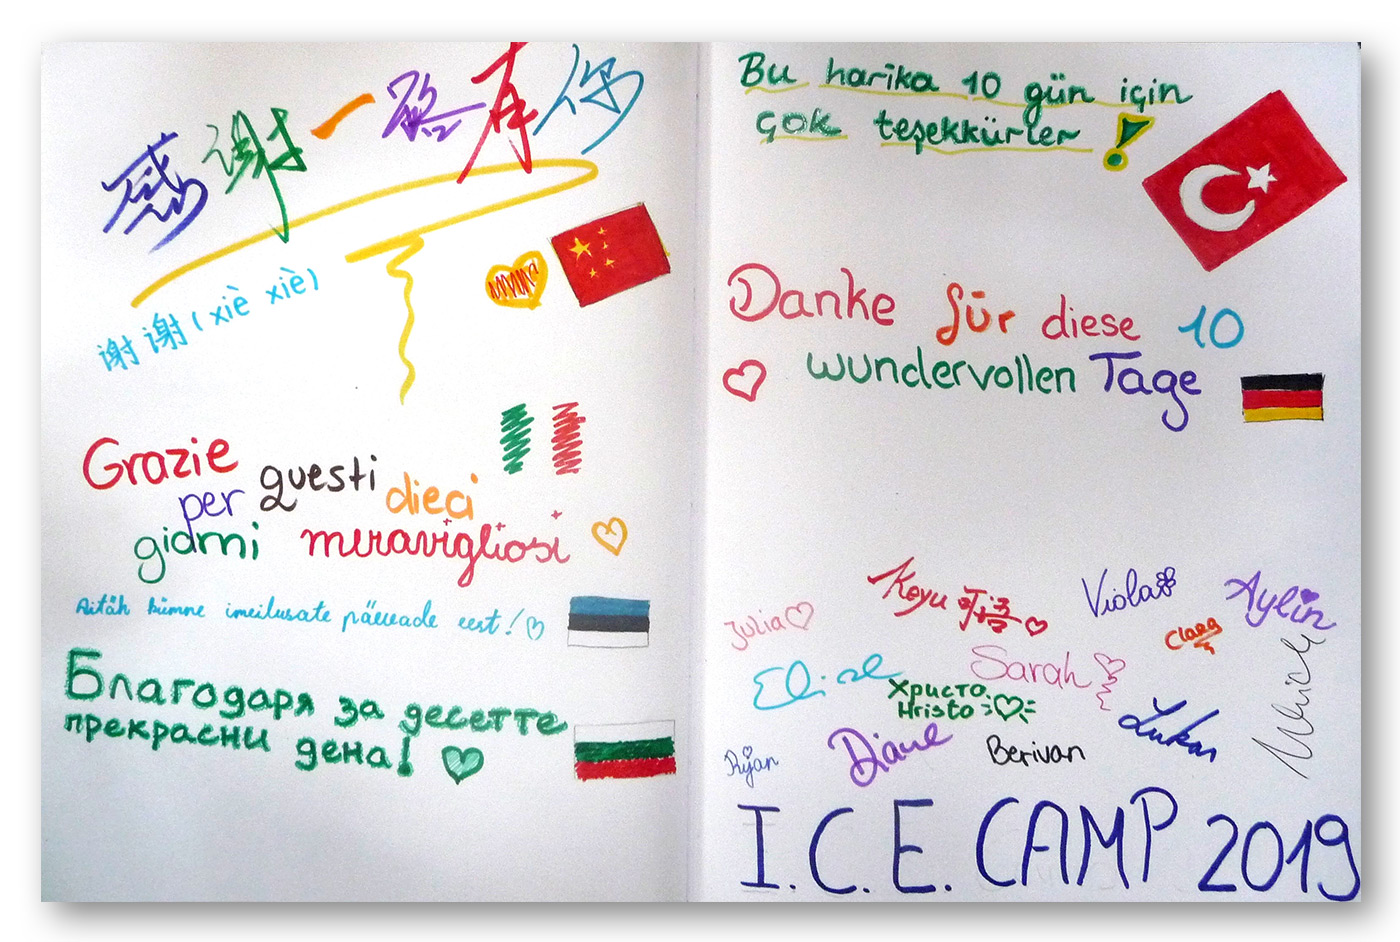 感谢一路有你
谢谢(xiè xiè)
Grazie questi
per dieci
giorni meravigliosi
Aitäh kümne imeilusate päevade eest!
Благодаря за десетте
прекрасни дена!
Bu harika 10 gün için
çok teşekkürler!
Danke für diese 10
wundervollen Tage
Julia Keyu Viola Aylin
Clara
Elise Sarah
Христо
Hristo Lukas
Ryan Diane Berivan
Ulrich
I.C.E. CAMP 2019